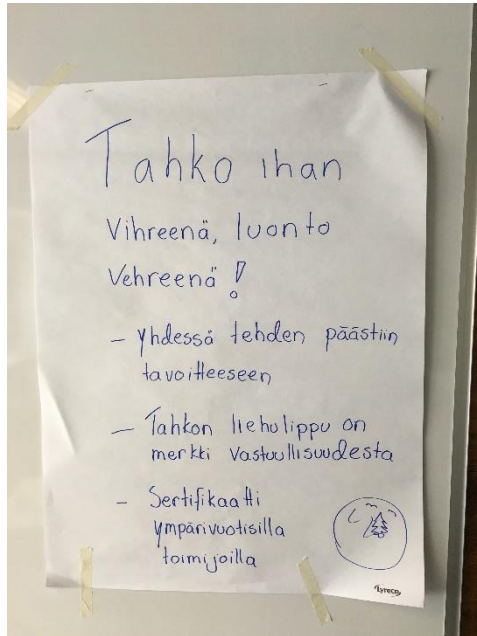 Tahko ihan
Vihreenä, luonto
Vehreenä!
- Yhdessä tehden päästiin
tavoitteeseen
- Tahkon liehulippu on
merkki vastuullisuudesta
- Sertifikaatti
ympärivuotisilla
toimijoilla
Lyreco